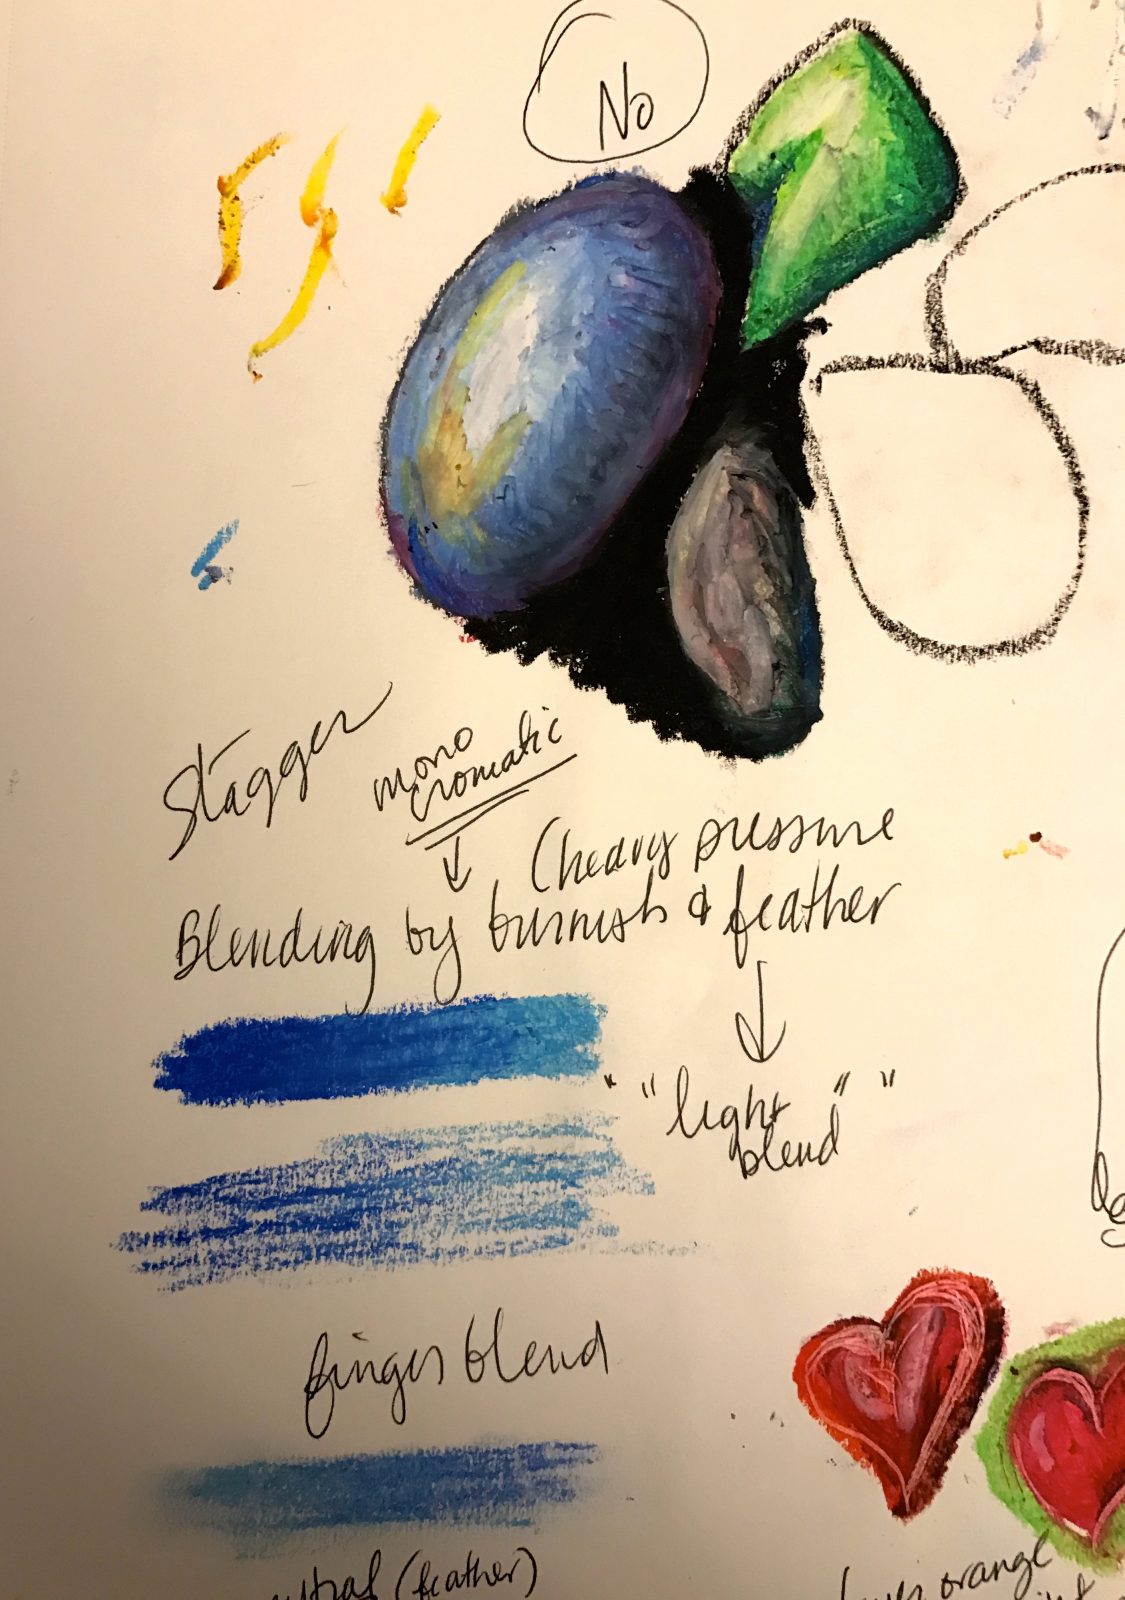 No
Stagger
mono
cromatic
(heavy pressure
Blending by burnish & feather
" "light
blend" "
finger blend
(feather)
orange